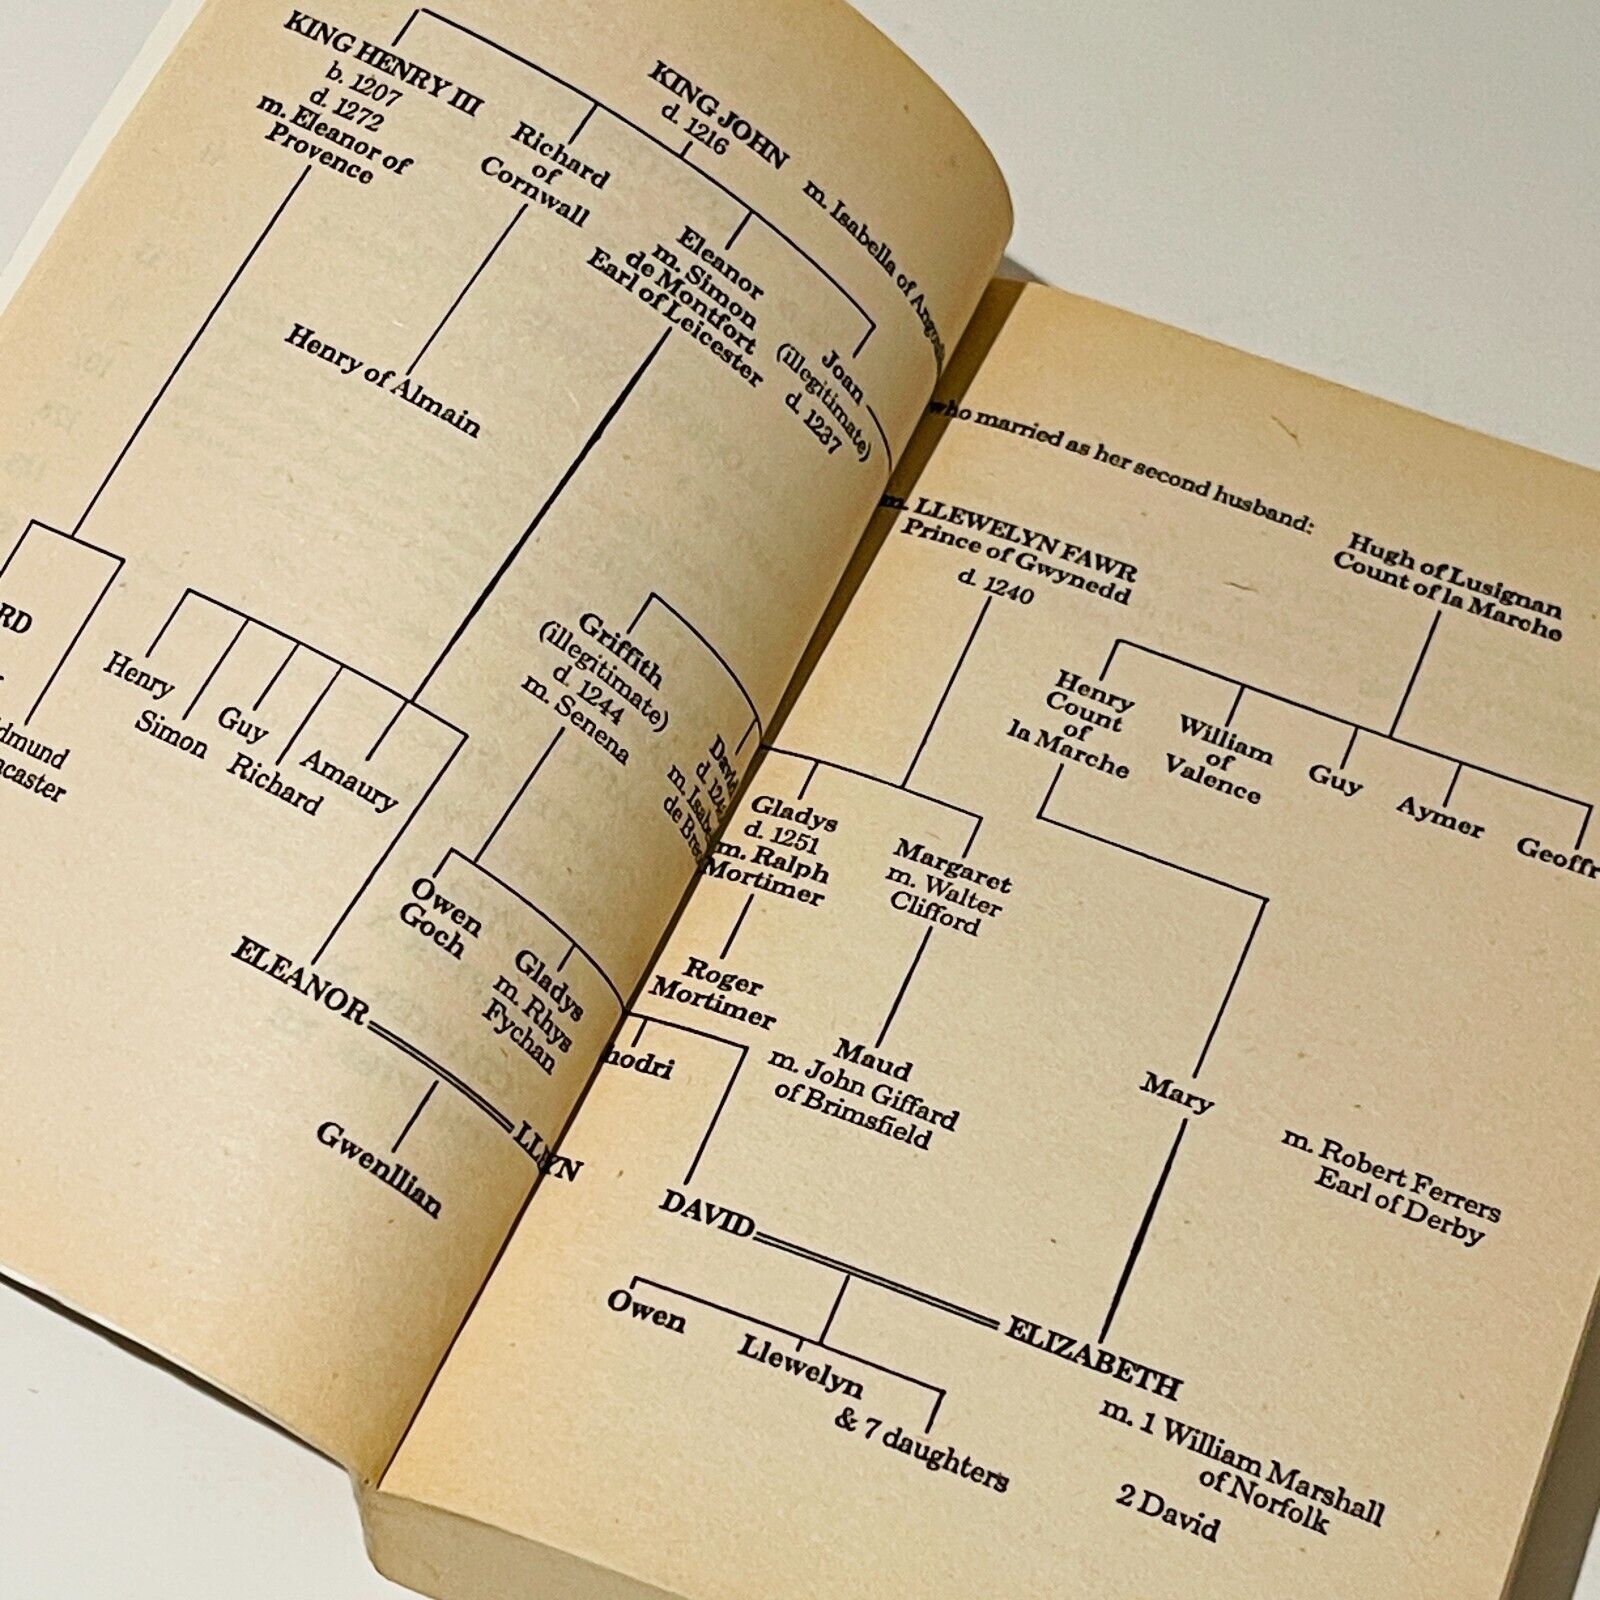 KING HENRY III
b. 1207
d. 1272
m. Eleanor of
Provence
Richard
of
Cornwall
KING JOHN
d. 1216
m. Isabella of
Eleanor
m. Simon
de Montfort
Earl of Leicester
Joan
(illegitimate)
d. 1237
Henry of Almain
RD
dmund
ncaster
Henry
Simon
Guy
Richard
Amaury
Griffith
(illegitimate)
d. 1244
m. Senena
David
d.
m.
de
Owen
Goch
Gladys
m. Rhys
Fychan
ELEANOR
Gwenllian
who married as her second husband:
m. LLEWELYN FAWR
Prince of Gwynedd
d. 1240
Hugh of Lusignan
Count of la Marche
Henry
Count
of
la Marche
William
of
Valence
Guy
Aymer
Geoffr
Gladys
d. 1251
m. Ralph
Mortimer
Margaret
m. Walter
Clifford
Roger
Mortimer
hodri
Maud
m. John Giffard
of Brimsfield
Mary
m. Robert Ferrers
Earl of Derby
DAVID
ELIZABETH
m. 1 William Marshall
of Norfolk
2 David
Owen
Llewelyn
& 7 daughters